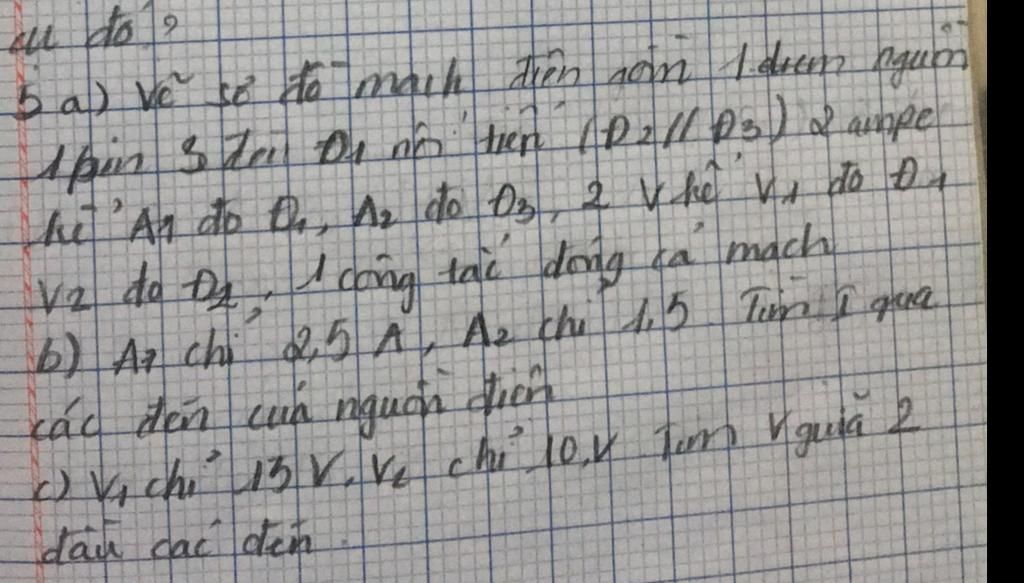 đó?
5 a) Vẽ sơ đồ mạch điện gồm 1 nguồn
1 pin 3 đèn Đ1 nối tiến (Đ2 // Đ3) 2 ampe
kế A1 đo Đ1, A2 đo Đ3, 2 V kế V1 đo Đ1
V2 đo Đ2, 1 công tắc đóng cả mạch
b) A1 chỉ 2,5 A, A2 chỉ 1,5 Tìm I qua
các đèn của nguồn điện
c) V1 chỉ 13 V, V2 chỉ 10 V Tìm V giữa 2
đầu các đèn.